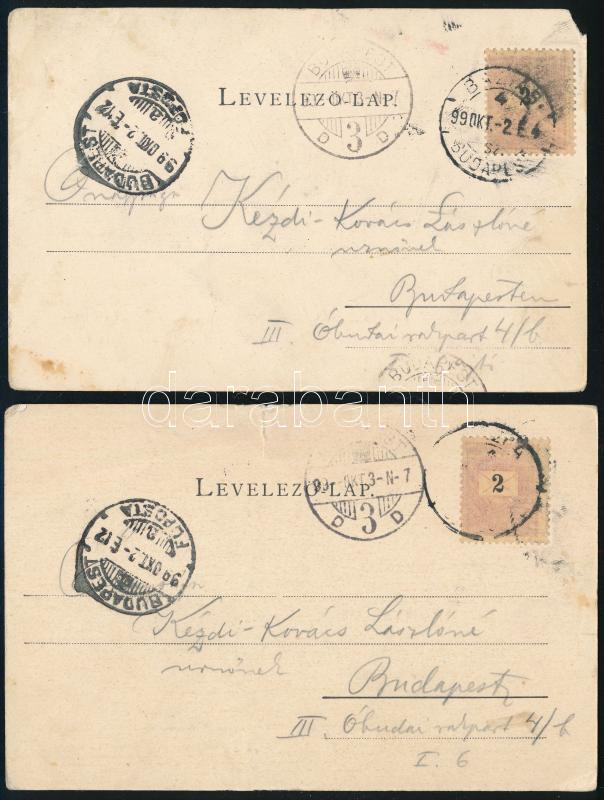 LEVELEZŐ-LAP.
BUDAPEST
3
D D
BUDAPEST
99 OKT. 2. E12
FŐPOSTA
99 OKT.-2 E 4
BUDAPEST
Kézdi-Kovács Lászlóné
urnőnek
Budapesten
III. Óbudai rakpart 4/b
BUDAPEST
darabanth
LEVELEZŐ-LAP.
99 OKT 3-N-7
3
D D
2
BUDAPEST
99 OKT. 2. E12
FŐPOSTA
Kézdi-Kovács Lászlóné
urnőnek
Budapest
III Óbudai rakpart 4/b
I. 6